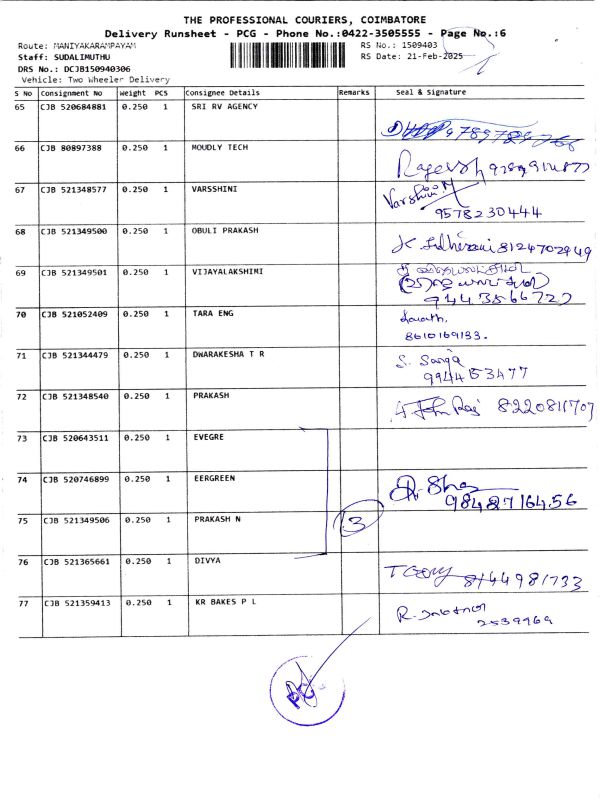 THE PROFESSIONAL COURIERS, COIMBATORE
Delivery Runsheet - PCG - Phone No.:0422-3505555 - Page No.:6
Route: MANIYAKARAMPAYAM RS No.: 1509403
Staff: SUDALIMUTHU RS Date: 21-Feb-2025
DRS No.: DCJB150940306
Vehicle: Two Wheeler Delivery
S No Consignment No Weight PCS Consignee Details Remarks Seal & Signature
65 CJB 520684881 0.250 1 SRI RV AGENCY
66 CJB 80897388 0.250 1 MOUDLY TECH
67 CJB 521348577 0.250 1 VARSSHINI
9578230444
68 CJB 521349500 0.250 1 OBULI PRAKASH 8124702949
69 CJB 521349501 0.250 1 VIJAYALAKSHIMI
70 CJB 521052409 0.250 1 TARA ENG
8610169133.
71 CJB 521344479 0.250 1 DWARAKESHA T R
9944153477
72 CJB 521348540 0.250 1 PRAKASH
73 CJB 520643511 0.250 1 EVEGRE
74 CJB 520746899 0.250 1 EERGREEN
9848716456
75 CJB 521349506 0.250 1 PRAKASH N 3
76 CJB 521365661 0.250 1 DIVYA 8144981733
77 CJB 521359413 0.250 1 KR BAKES P L
2539969